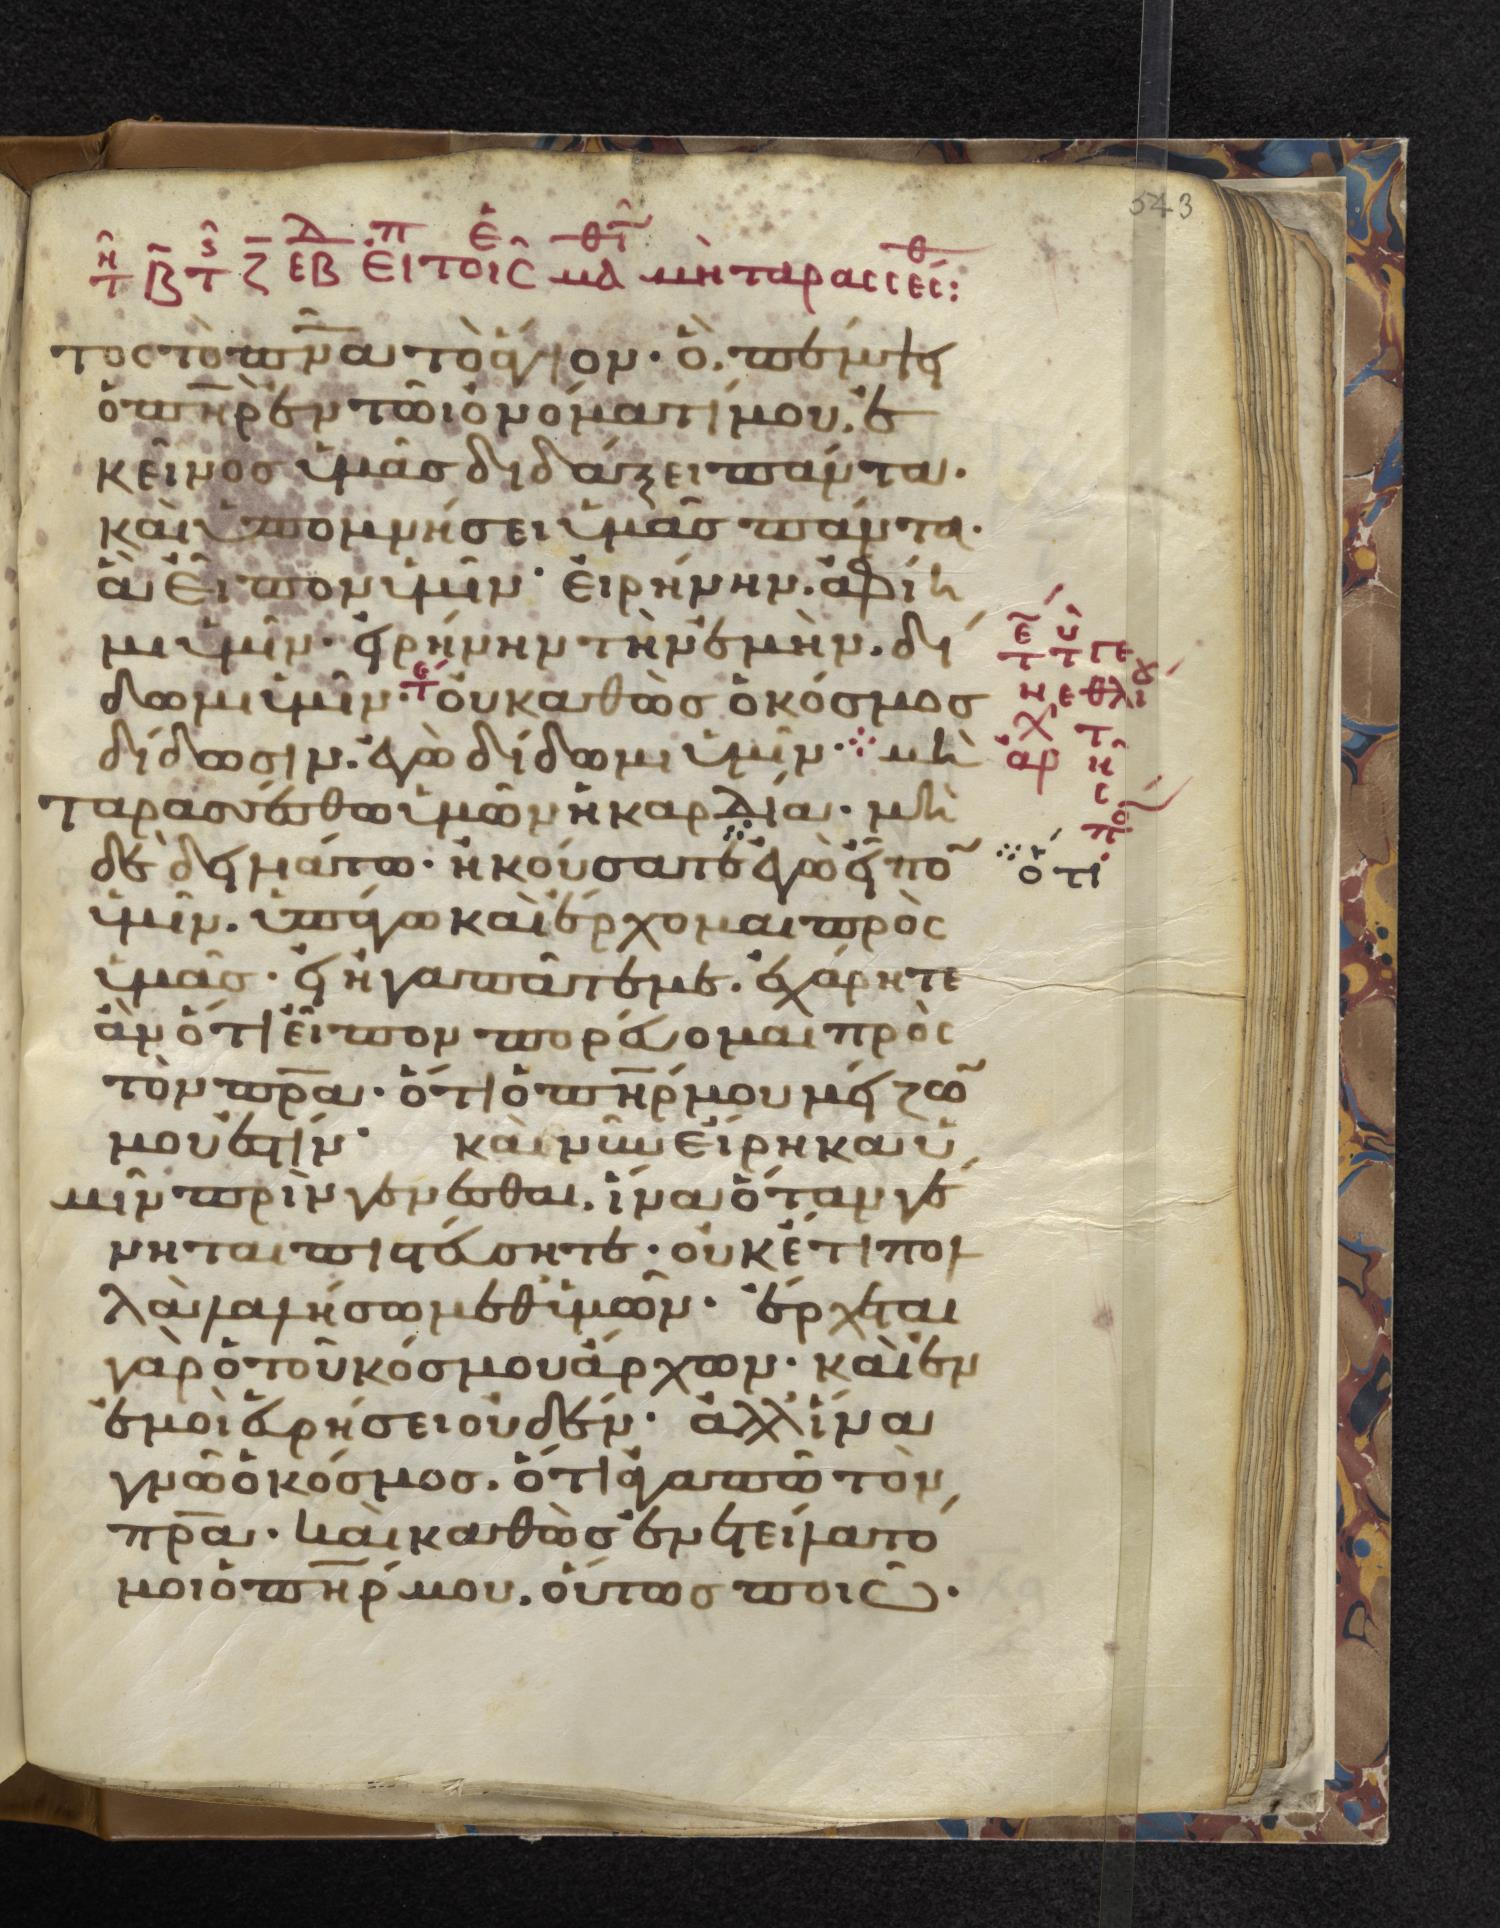 543
τος τὸ π̅ν̅α̅ τὸ ἅγιον· ὃ πέμψει
ὁ π̅η̅ρ̅ ἐν τῶι ὀνόματί μου, ἐ
κεῖνος ὑμᾶς διδάξει πάντα·
καὶ ὑπομνήσει ὑμᾶς πάντα·
ἃ εἶπον ὑμῖν· εἰρήνην ἀφίη
μι ὑμῖν· εἰρήνην τὴν ἐμὴν. δί
δωμι ὑμῖν· οὐ καθὼς ὁ κόσμος
δίδωσιν. ἐγὼ δίδωμι ὑμῖν· μὴ
ταρασσέσθω ὑμῶν ἡ καρδία· μὴ
δὲ δειλιάτω· ἠκούσατε ἐγὼ εἶπο̅
ὅτι
ὑμῖν. ὑπάγω καὶ ἔρχομαι πρὸς
ὑμᾶς· εἰ ἠγαπᾶτέ με. ἐχάρητε
ἂν ὅτι εἶπον πορεύομαι πρὸς
τὸν π̅ρ̅α̅· ὅτι ὁ π̅η̅ρ̅ μου μείζω̅
μου ἐστίν· καὶ νῦν εἴρηκα ὑ
μῖν πρὶν γενέσθαι. ἵνα ὅταν γέ
νηται πιστεύσητε· οὐκέτι πολ
λὰ λαλήσω μεθ' ὑμῶν· ἔρχεται
γὰρ ὁ τοῦ κόσμου ἄρχων· καὶ ἐν
ἐμοὶ εὑρήσει οὐδέν· ἀλλ' ἵνα
γνῶ ὁ κόσμος. ὅτι ἀγαπῶ τὸν
π̅ρ̅α̅· καὶ καθὼς ἐνετείλατό
μοι ὁ π̅η̅ρ̅ μου. οὕτως ποιῶ·